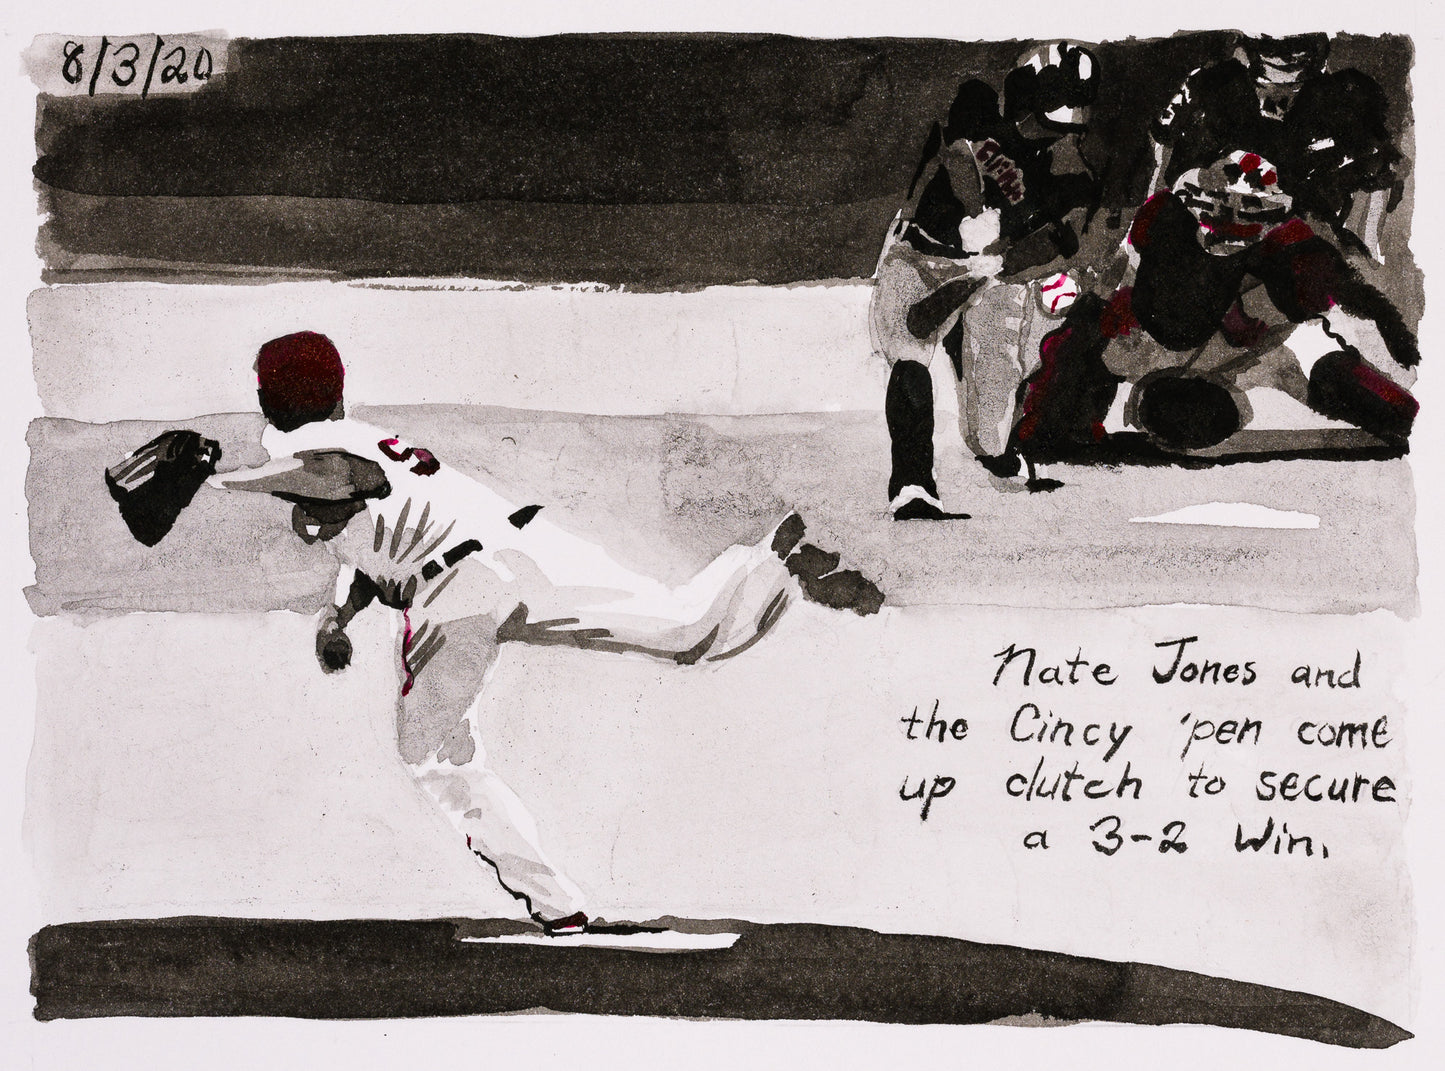 8/3/20
Nate Jones and
the Cincy 'pen come
up clutch to secure
a 3-2 Win.